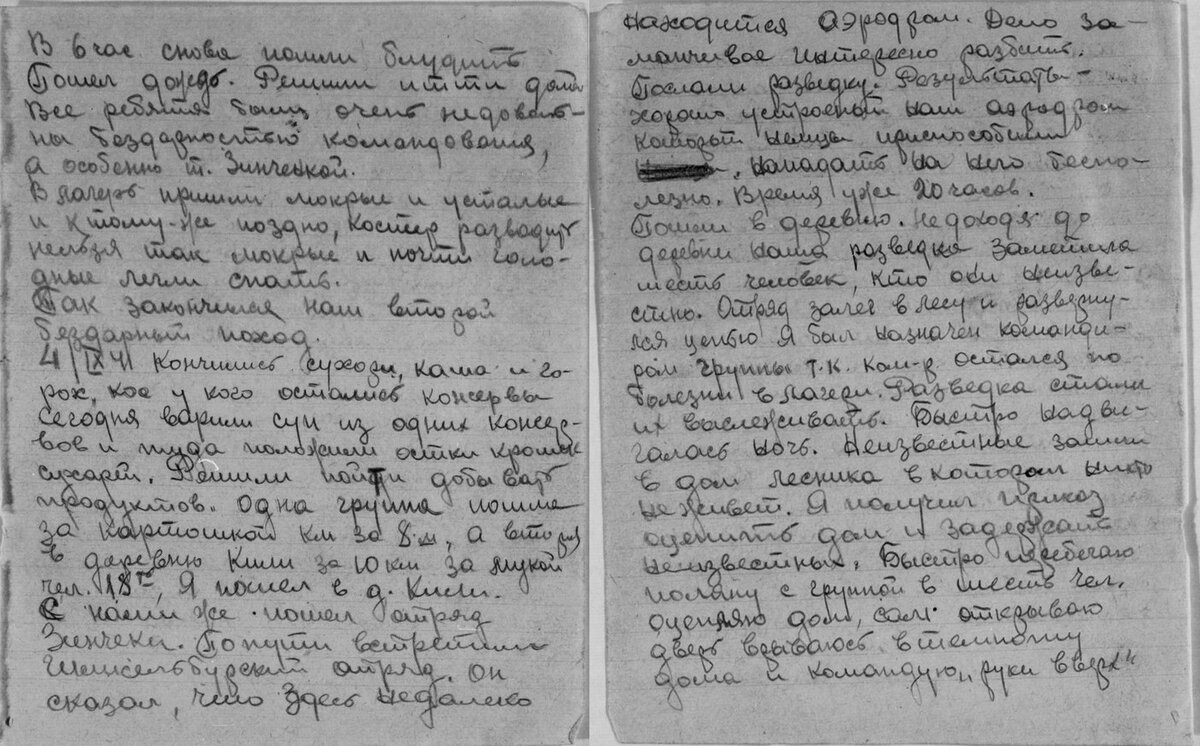 В 6 час снова пошли блудить
Пошел дождь. Решили итти домой
Все ребята были очень недоволь-
ны бездарностью командования,
а особенно т. Зинченкой.
В лагерь пришли мокрые и усталые
и к тому-же поздно, костер разводить
нельзя так мокрые и почти голо-
дные легли спать.
Так закончился наш второй
бездарный поход.
4/IX 41 Кончились сухари, каша и го-
рох, кое у кого остались консервы
Сегодня варили суп из одних консер-
вов и туда положили остки крошек
сухарей. Решили пойти добывать
продуктов. Одна группа пошла
за картошкой км за 8-м, а вторая
в деревню Кили за 10 км за мукой
чел. 18ть, Я пошел в д. Кили.
С нами же пошел отряд
Зинченки. По пути встретили
Шлиссельбурский отряд. он
сказал, что здесь недалеко
находится аэродром. Дело за-
манчивое интересно разбить.
Послали разведку. Результаты-
хорошо устроеный наш аэродром
который немцы приспособили
нападать на него беспо-
лезно. Время уже 20 часов.
Пошли в деревню. Не доходя до
деревни наша разведка заметила
шесть человек, кто они неизве-
стно. Отряд залег в лесу и развернул-
лся цепью Я был назначен команди-
ром группы т.к. ком-р остался по
болезни в лагере. Разведка стали
их выслеживать. Быстро надви-
галась ночь. Неизвестные зашли
в дом лесника в котором никто
не живет. Я получил приказ
оцепить дом и задержать
неизвестных. Быстро перебегаю
поляну с группой в шесть чел.
оцепляю дом, сам открываю
дверь врываюсь в темноту
дома и командую „руки вверх“